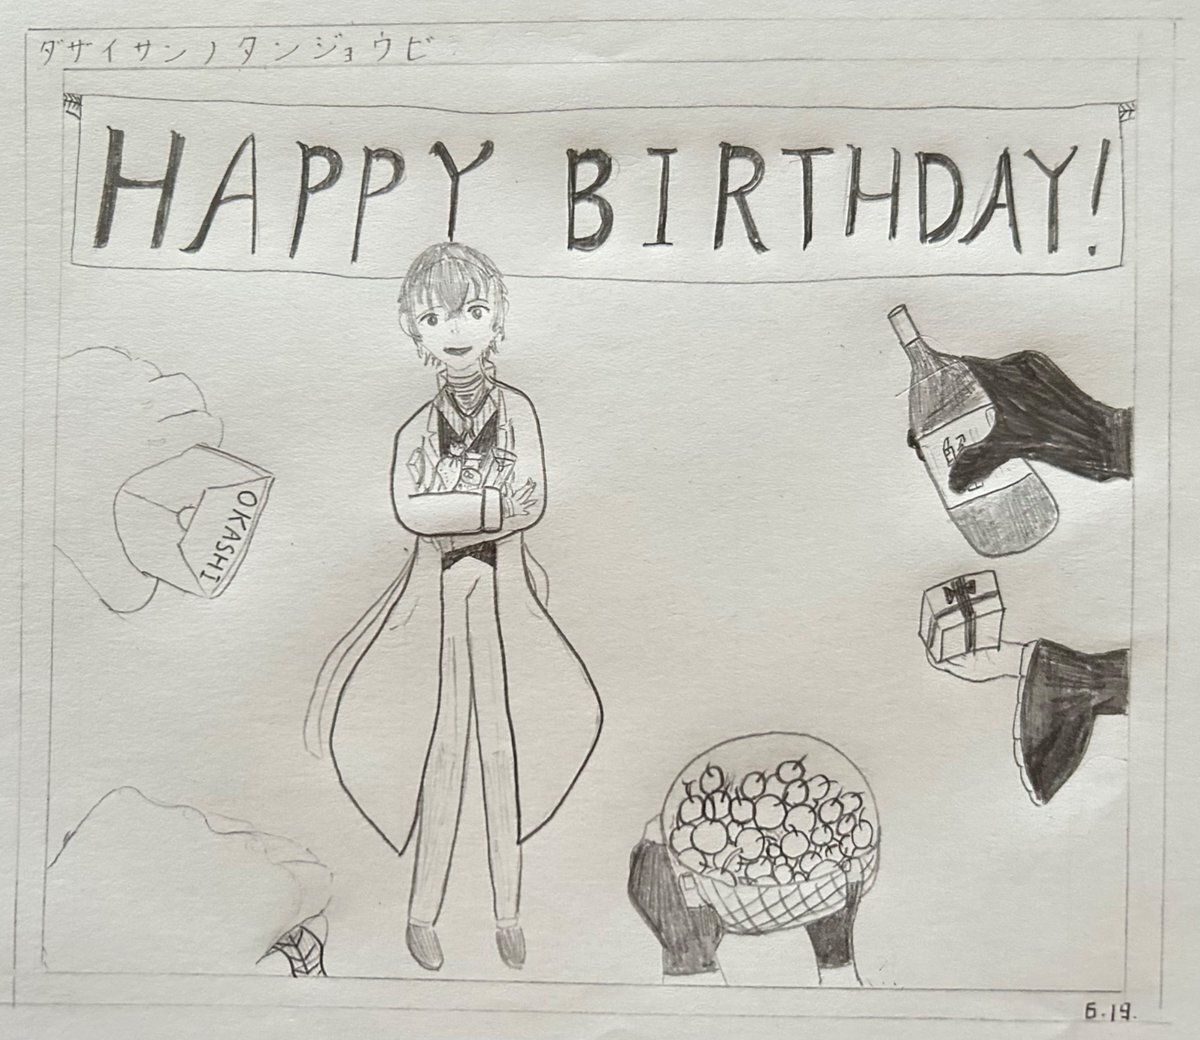 ダザイサンノタンジョウビ
HAPPY BIRTHDAY!
OKASHI
6.19.